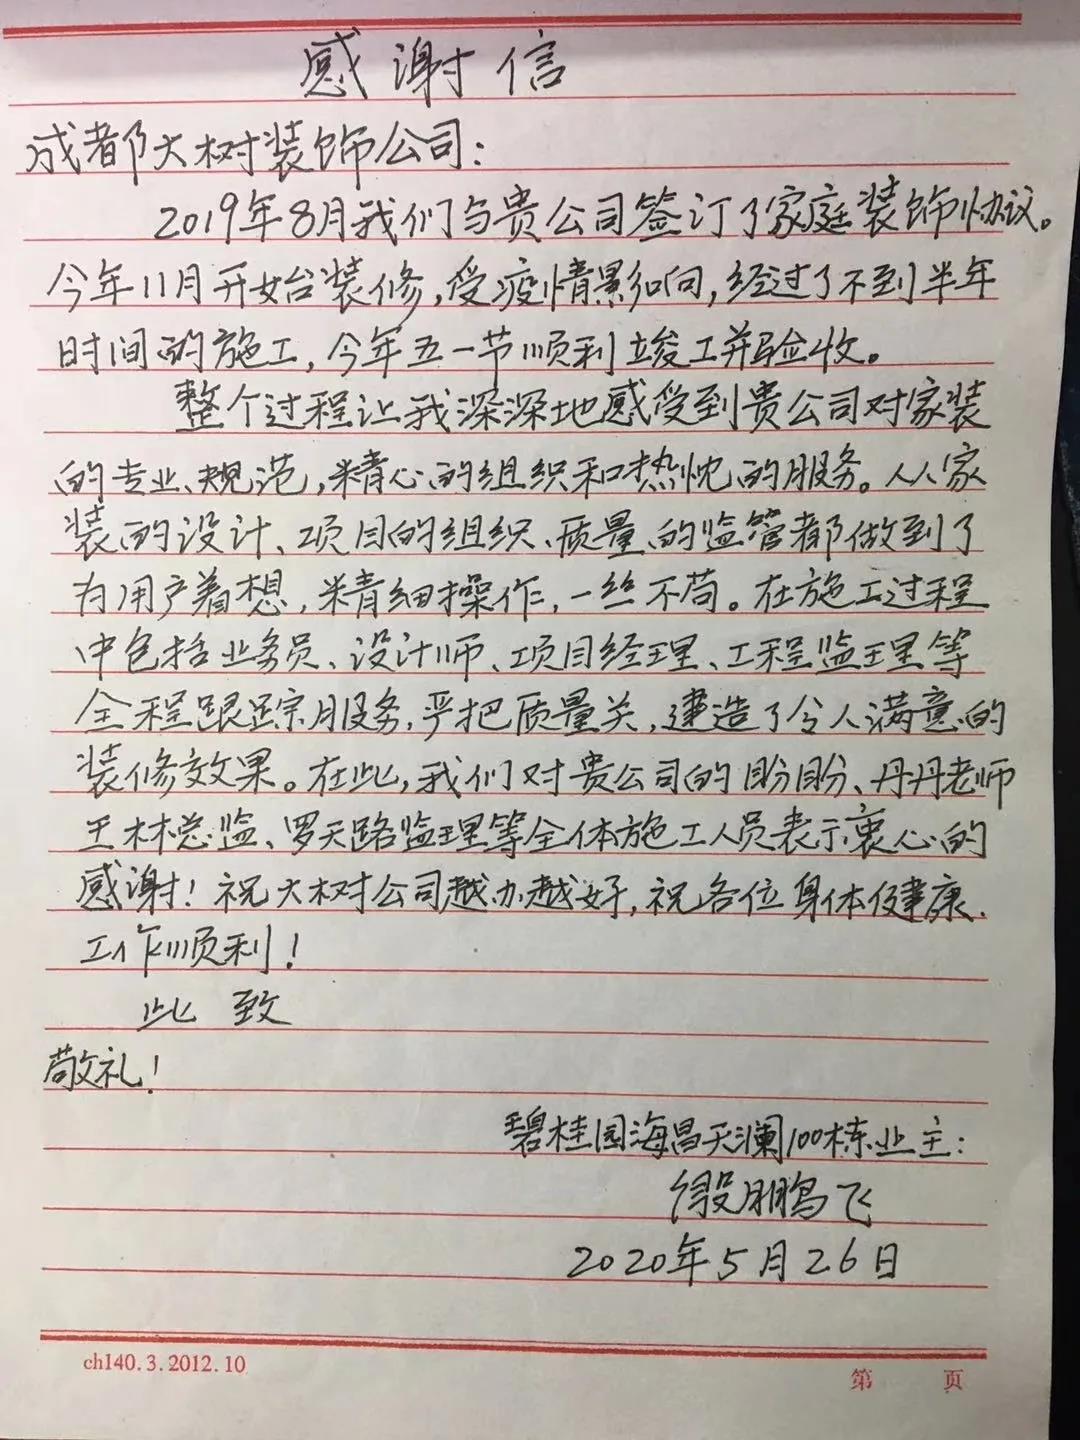 感谢信
成都大树装饰公司：
2019年8月我们与贵公司签订了家庭装饰协议。
今年11月开始装修,受疫情影响,经过了不到半年
时间的施工,今年五一节顺利竣工并验收。
整个过程让我深深地感受到贵公司对家装
的专业、规范,精心的组织和热忱的服务。从家
装的设计、项目的组织、质量的监管都做到了
为用户着想,精细操作,一丝不苟。在施工过程
中包括业务员、设计师、项目经理、工程监理等
全程跟踪服务,严把质量关,建造了令人满意的
装修效果。在此,我们对贵公司的盼盼、丹丹老师
王林总监、罗天路监理等全体施工人员表示衷心的
感谢！祝大树公司越办越好,祝各位身体健康、
工作顺利！
此致
敬礼！
碧桂园海昌天澜100栋业主：
鹏飞
2020年5月26日
ch140.3.2012.10
第 页